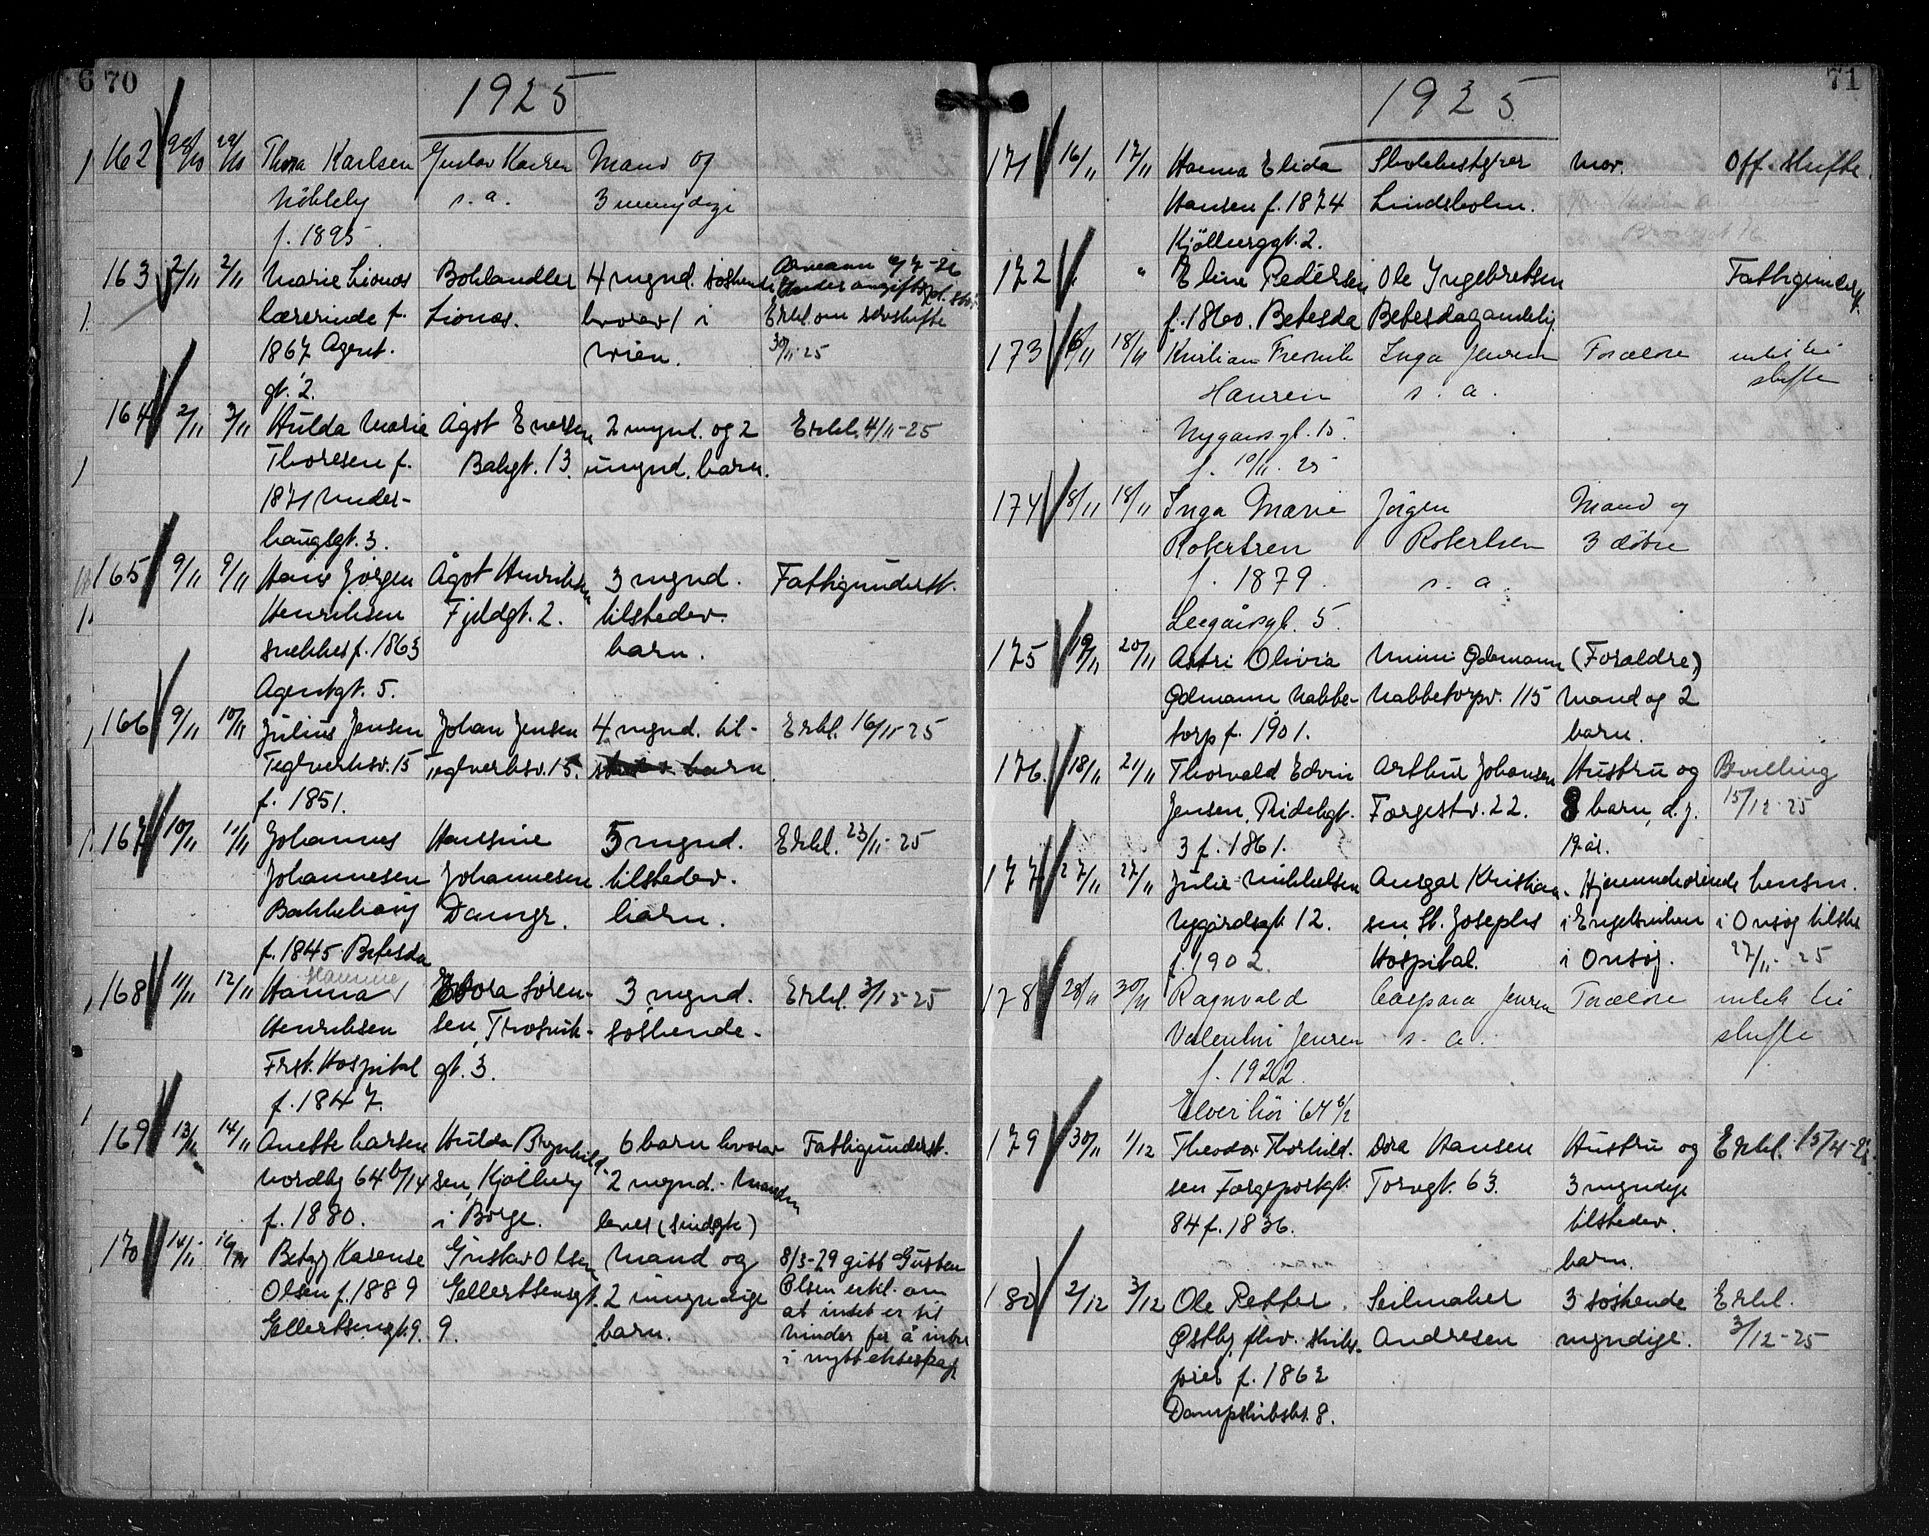 70
1925
162 28/10 29/10 Thora Karlsen Gustav Karlsen Mand og
Nökleby s. a. 3 umyndige
f. 1895
163 2/11 2/11 Marie Lionæs Bokhandler 4 mynd. søskende
lærerinde f. Lionæs. hvorav 1 i Erkl. om selvskifte
1867 Agent. wien. 30/11-25
gt. 2.
164 2/11 3/11 Hulda Marie Ågot Eversen 2 mynd. og 2 Erkl. 4/11-25
Thoresen f. Bakgt. 13 umynd. barn.
1871 Under-
haugsgt. 3.
165 9/11 9/11 Hans Jörgen Ågot Henriksen 3 mynd. Fattigunderst.
Henriksen Fjeldgt. 2. tilstedev.
snekker f. 1863 barn.
Agentgt. 5.
166 9/11 10/11 Julius Jensen Johan Jensen 4 mynd. til- Erkl. 16/11-25
Teglverksv. 15 Teglverksv. 15. barn
f. 1851.
167 10/11 11/11 Johannes Hansine 5 mynd. Erkl. 23/11-25
Johannesen Johannesen tilstedev.
Bakkehaug Damgr. barn.
f. 1845 Betesda
168 11/11 12/11 Hanna Thora Søren- 3 mynd. Erkl. 3/12-25
Henriksen sen, Trosvik- søskende.
Frst. Hospital gt. 3.
f. 1847.
169 13/11 14/11 Anette Larsen Hulda Brynhild- 6 barn hvorav Fattigunderst.
Nordby 64 b/14 sen, Kjølberg 2 mynd. Manden
f. 1880. i Borge. lever (sindsyk)
170 14/11 16/11 Betzy Karense Gustav Olsen Mand og 8/3-29 gitt Gustav
Olsen f. 1889 Gellertsensgt. 2 umyndige Olsen erkl. om
Gellertsensgt. 9. 9. barn. at intet er til
hinder for å inntre
i nytt ekteskap
71
1925
171 16/11 17/11 Hanna Elida Skolebestyrer Mor. Off. skifte.
Hansen f. 1874 Lindeholm.
Kjölberggt. 2.
172 " Eline Pedersen Ole Ingebretsen Fattigunderst.
f. 1860. Betesda Betesdagamleby
173 18/11 Kristian Fredrik Inga Jensen Forældre intet til
Hansen s. a. skifte
Nygårdsgt. 15.
f. 10/11. 25
174 18/11 18/11 Inga Marie Jörgen Mand og
Robertsen Robertsen 3 døtre
f. 1879. s. a.
Leegårdsgt. 5.
175 19/11 20/11 Astri Olivia Mimi Ødemann (Forældre)
Ødmann Nabbe- Nabbetorpv. 115 Mand og 2
torp f. 1901. barn.
176. 18/11 21/11 Thorvald Edvin Arthur Johansen Hustru og Bevilling
Jensen, Ridehgt. Færgestv. 22. 8 barn, d. y. 15/12-25
3 f. 1861. 19 år.
177 27/11 27/11 Julie Mikkelsen Ansgar Kristian- Hjemmehørende Lensm.
Nygårdsgt. 12. sen, St. Josephs i Engelsviken i Onsøy tilskr.
f. 1902. Hospital. i Onsøy. 27/11-25
178 28/11 30/11 Ragnvald Caspara Jensen Forældre intet til
Valentin Jensen s. a. skifte
f. 1922.
Elverhöi 64 b/2
179 30/11 1/12 Theodor Thorkild- Dora Hansen Hustru og Erkl. 15/4-26
sen Færgeportgt. Torvgt. 63. 3 myndige
84 f. 1836. tilstedev.
barn.
180 2/12 3/12 Ole Petter Seilmaker 3 søskende Erkl.
Østby, fhv. skibs- Andresen myndige. 3/12-25
pier f. 1862
Dampskibsbr. 8.